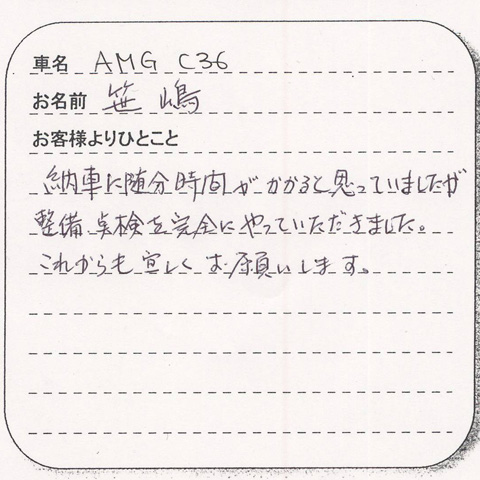 車名 AMG C36
お名前 笹嶋
お客様よりひとこと
納車に随分時間がかかると思っていましたが
整備、点検を完全にやっていただきました。
これからも宜しくお願いします。